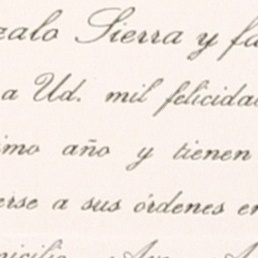 zalo Sierra y fa
a Ud. mil felicidad
imo año y tienen
erse a sus órdenes en
micilio Ave. A